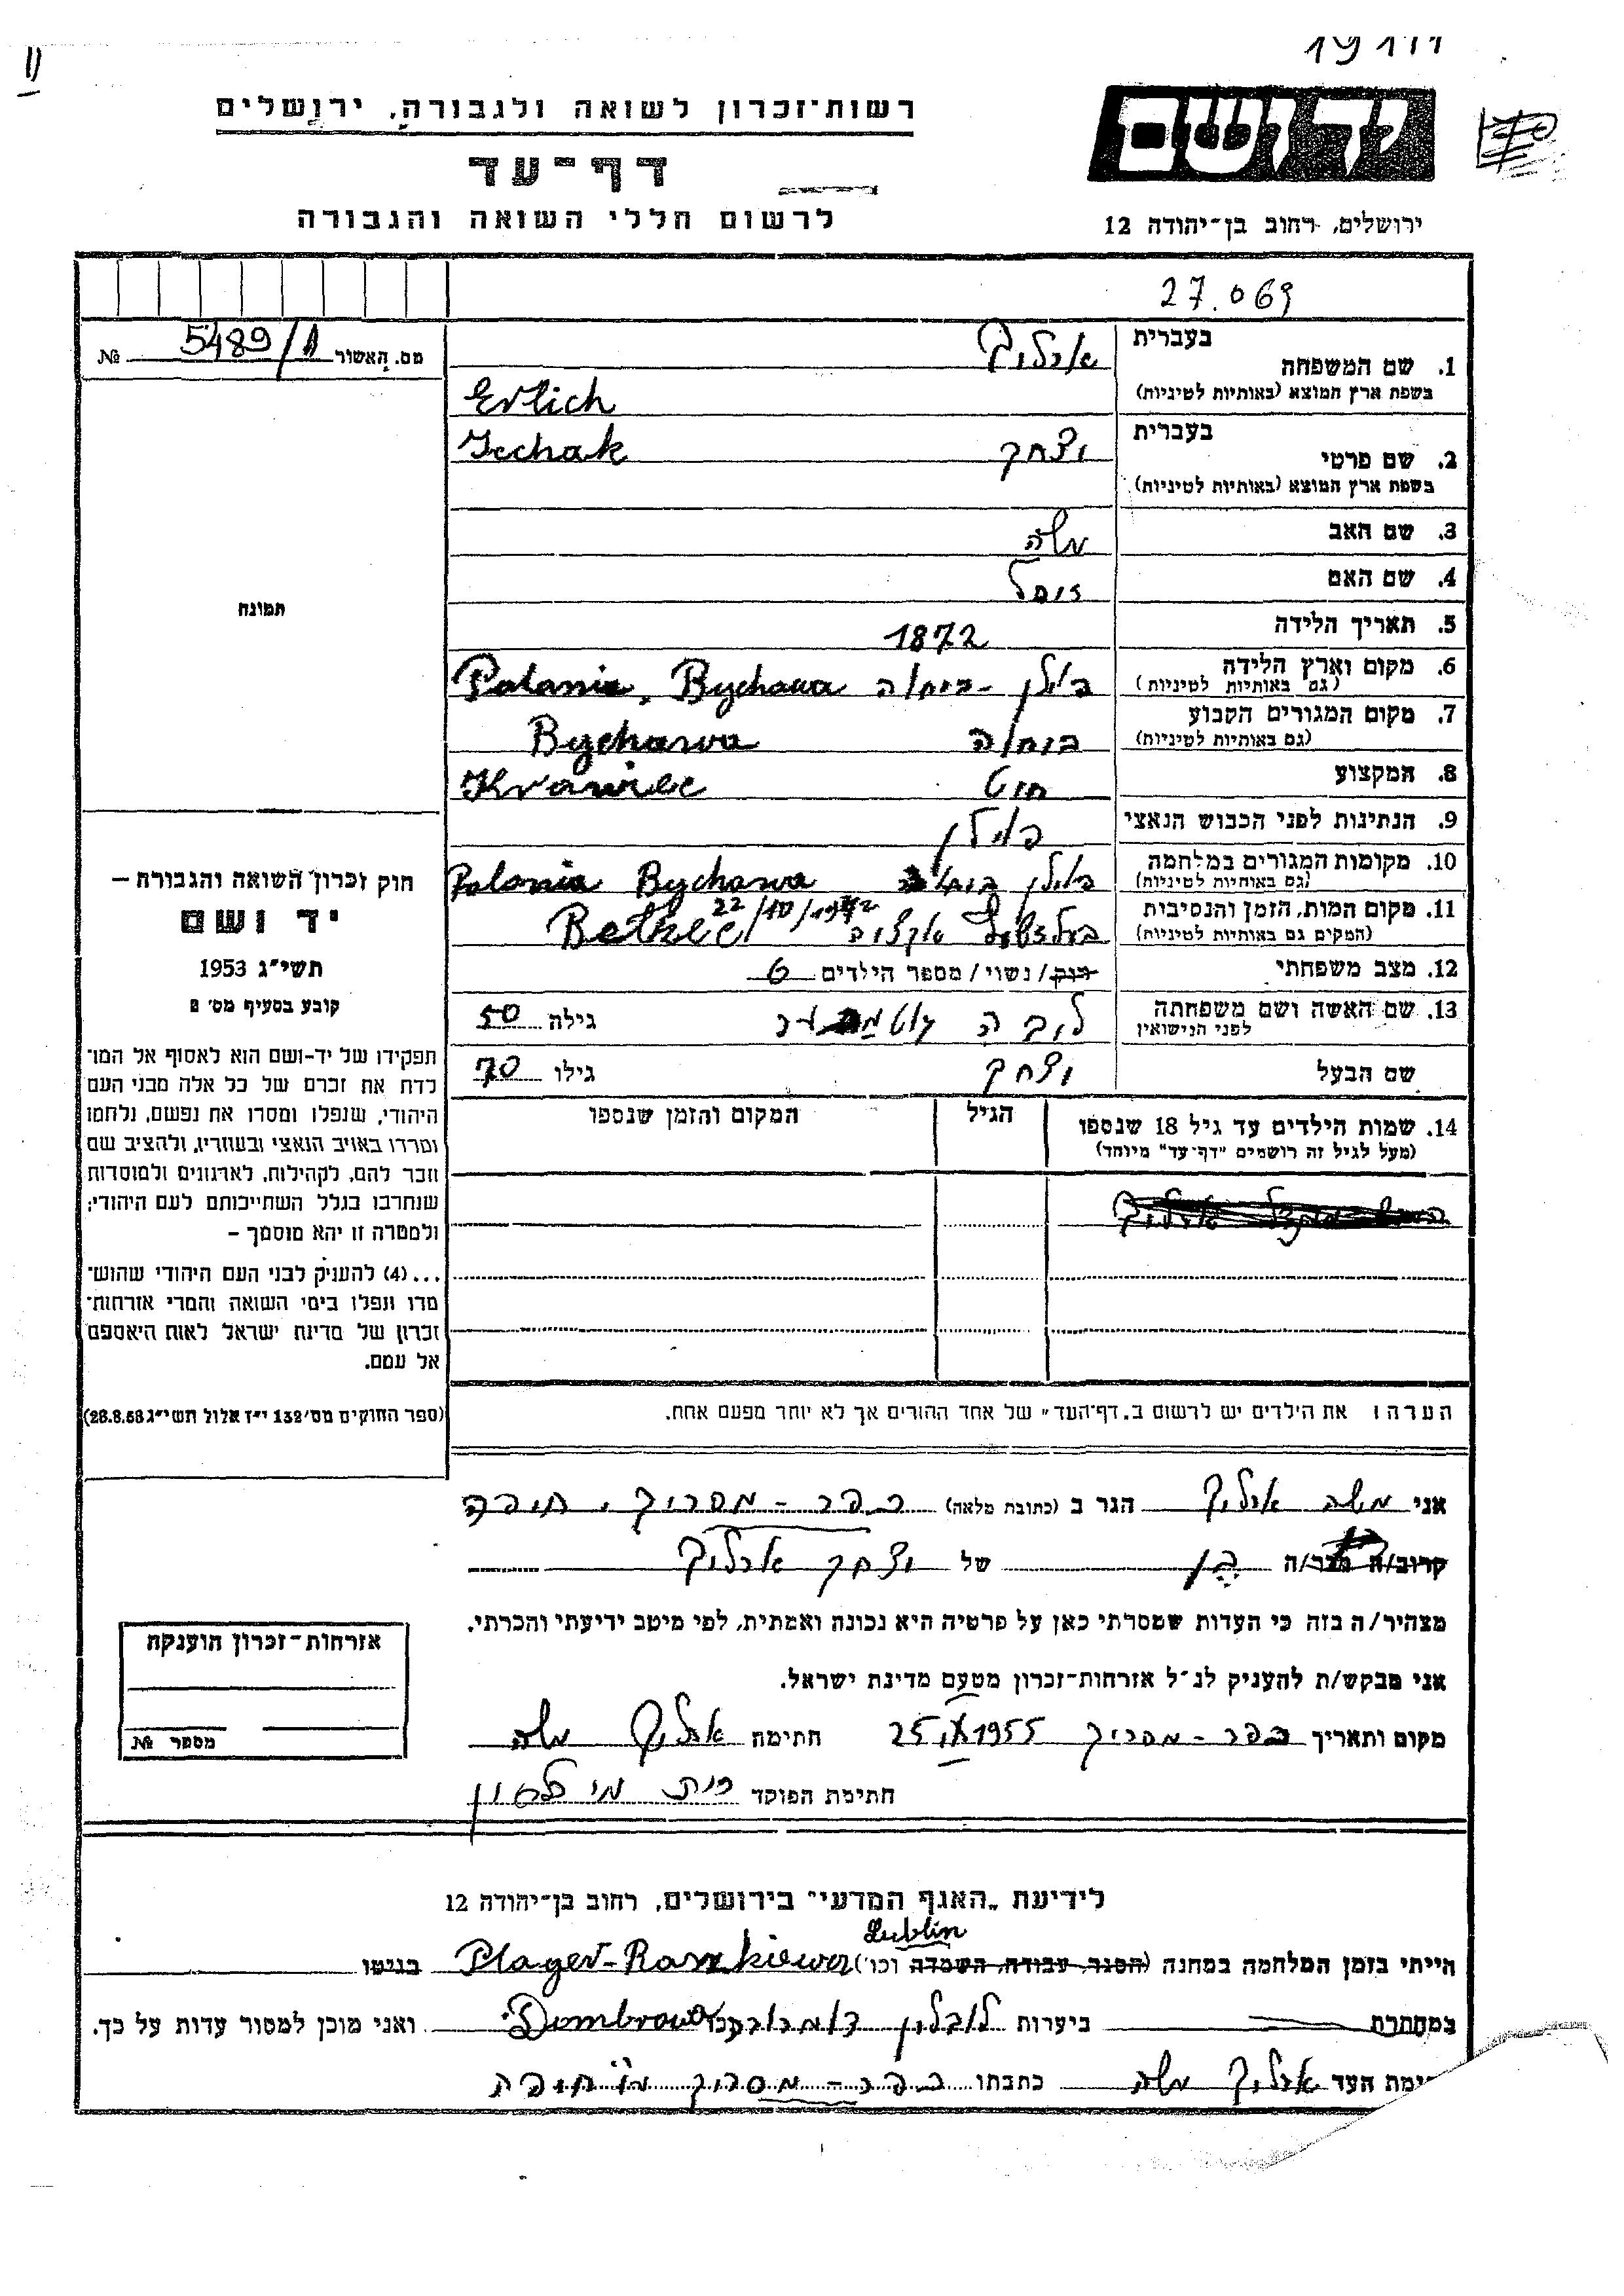 רשות־זכרון לשואה ולגבורה, ירושלים
דף־עד
לרשום חללי השואה והגבורה
יד ושם
ירושלים, רחוב בן־יהודה 12
27.069
מס. האשור 5489/ №
1. שם המשפחה בעברית ארליך
בשפת ארץ המוצא (באותיות לטיניות) Erlich
2. שם פרטי בעברית יצחק Icchak
בשפת ארץ המוצא (באותיות לטיניות)
3. שם האב משה
4. שם האם
5. תאריך הלידה 1872
6. מקום וארץ הלידה פולין - ביחוה Polania, Bychawa
(גם באותיות לטיניות)
7. מקום המגורים הקבוע ביחוה Bychawa
(גם באותיות לטיניות)
8. המקצוע חיט Krawiec
9. הנתינות לפני הכבוש הנאצי פולין
10. מקומות המגורים במלחמה פולין Polania Bychawa
(גם באותיות לטיניות)
11. מקום המות, הזמן והנסיבות אקציה Betzec 22/10/1942
(המקום גם באותיות לטיניות)
12. מצב משפחתי רוק / נשוי / מספר הילדים 6
13. שם האשה ושם משפחתה לפני הנישואין ליבה גילה 50
שם הבעל יצחק גילו 70
14. שמות הילדים עד גיל 18 שנספו הגיל המקום והזמן שנספו
(מעל לגיל זה רושמים "דף־עד" מיוחד)
הערה: את הילדים יש לרשום ב„דף־העד" של אחד ההורים אך לא יותר מפעם אחת.
תמונה
חוק זכרון השואה והגבורה –
יד ושם
תשי״ג 1953
קובע בסעיף מס׳ 2
תפקידו של יד־ושם הוא לאסוף אל המו־
לדת את זכרם של כל אלה מבני העם
היהודי, שנפלו ומסרו את נפשם, נלחמו
ומרדו באויב הנאצי ובעוזריו, ולהציב שם
וזכר להם, לקהילות, לארגונים ולמוסדות
שנחרבו בגלל השתייכותם לעם היהודי;
ולמטרה זו יהא מוסמך –
...(4) להעניק לבני העם היהודי שהוש־
מדו ונפלו בימי השואה והמרי אזרחות־
זכרון של מדינת ישראל לאות היאספם
אל עמם.
(ספר החוקים מס׳ 132 י״ז אלול תשי״ג 28.8.53)
אני משה ארליך הגר ב (כתובת מלאה) כפר - מסריק, חיפה
קרוב/ה מכר/ה בן של יצחק ארליך
מצהיר/ה בזה כי העדות שמסרתי כאן על פרטיה היא נכונה ואמתית, לפי מיטב ידיעתי והכרתי.
אני מבקש/ת להעניק לנ״ל אזרחות־זכרון מטעם מדינת ישראל.
מקום ותאריך כפר - מסריק 25 1955 חתימה ארליך משה
חתימת הפוקד
אזרחות־זכרון הוענקה
מספר №
לידיעת „האגף המדעי" בירושלים, רחוב בן־יהודה 12
הייתי בזמן המלחמה במחנה (הסגר, עבודה, השמדה וכו׳) Lublin בגיטו
במחתרת ביערות לובלין ואני מוכן למסור עדות על כך.
ימת העד ארליך משה כתבתו כפר - מסריק חיפה